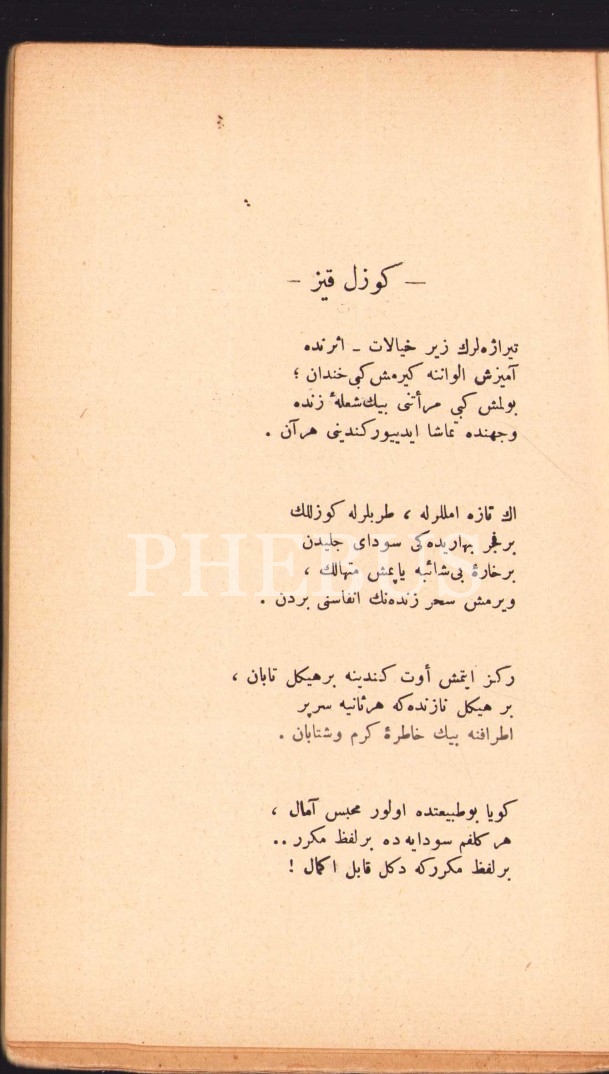 — كوزل قيز —
تيراژه‌لرك زير خيالات ـ اثرنده
آميزش الواننه كيرمش كبى خندان ؛
بولمش كبى مرأتنى بيك شعلهٔ زنده
وجهنده تماشا ايدييور كندينى هرآن .
اك تازه امللرله ، طربلرله كوزللك
بر فجر بهاريده‌كى سوداى جليدن
بر خارهٔ بى‌شائبه ياپمش متهالك ،
ويرمش سحر زنده‌نك انفاسنى بردن .
ركز ايتمش أوت كندينه بر هيكل تابان ،
بر هيكل نازنده‌كه هر ثانيه سرپر
اطرافنه بيك خاطرهٔ كرم وشتابان .
كويا بو طبيعتده اولور محبس آمال ،
هر كلفم سودايه ده بر لفظ مكرر ..
بر لفظ مكرركه دكل قابل اكمال !
PHEBUS